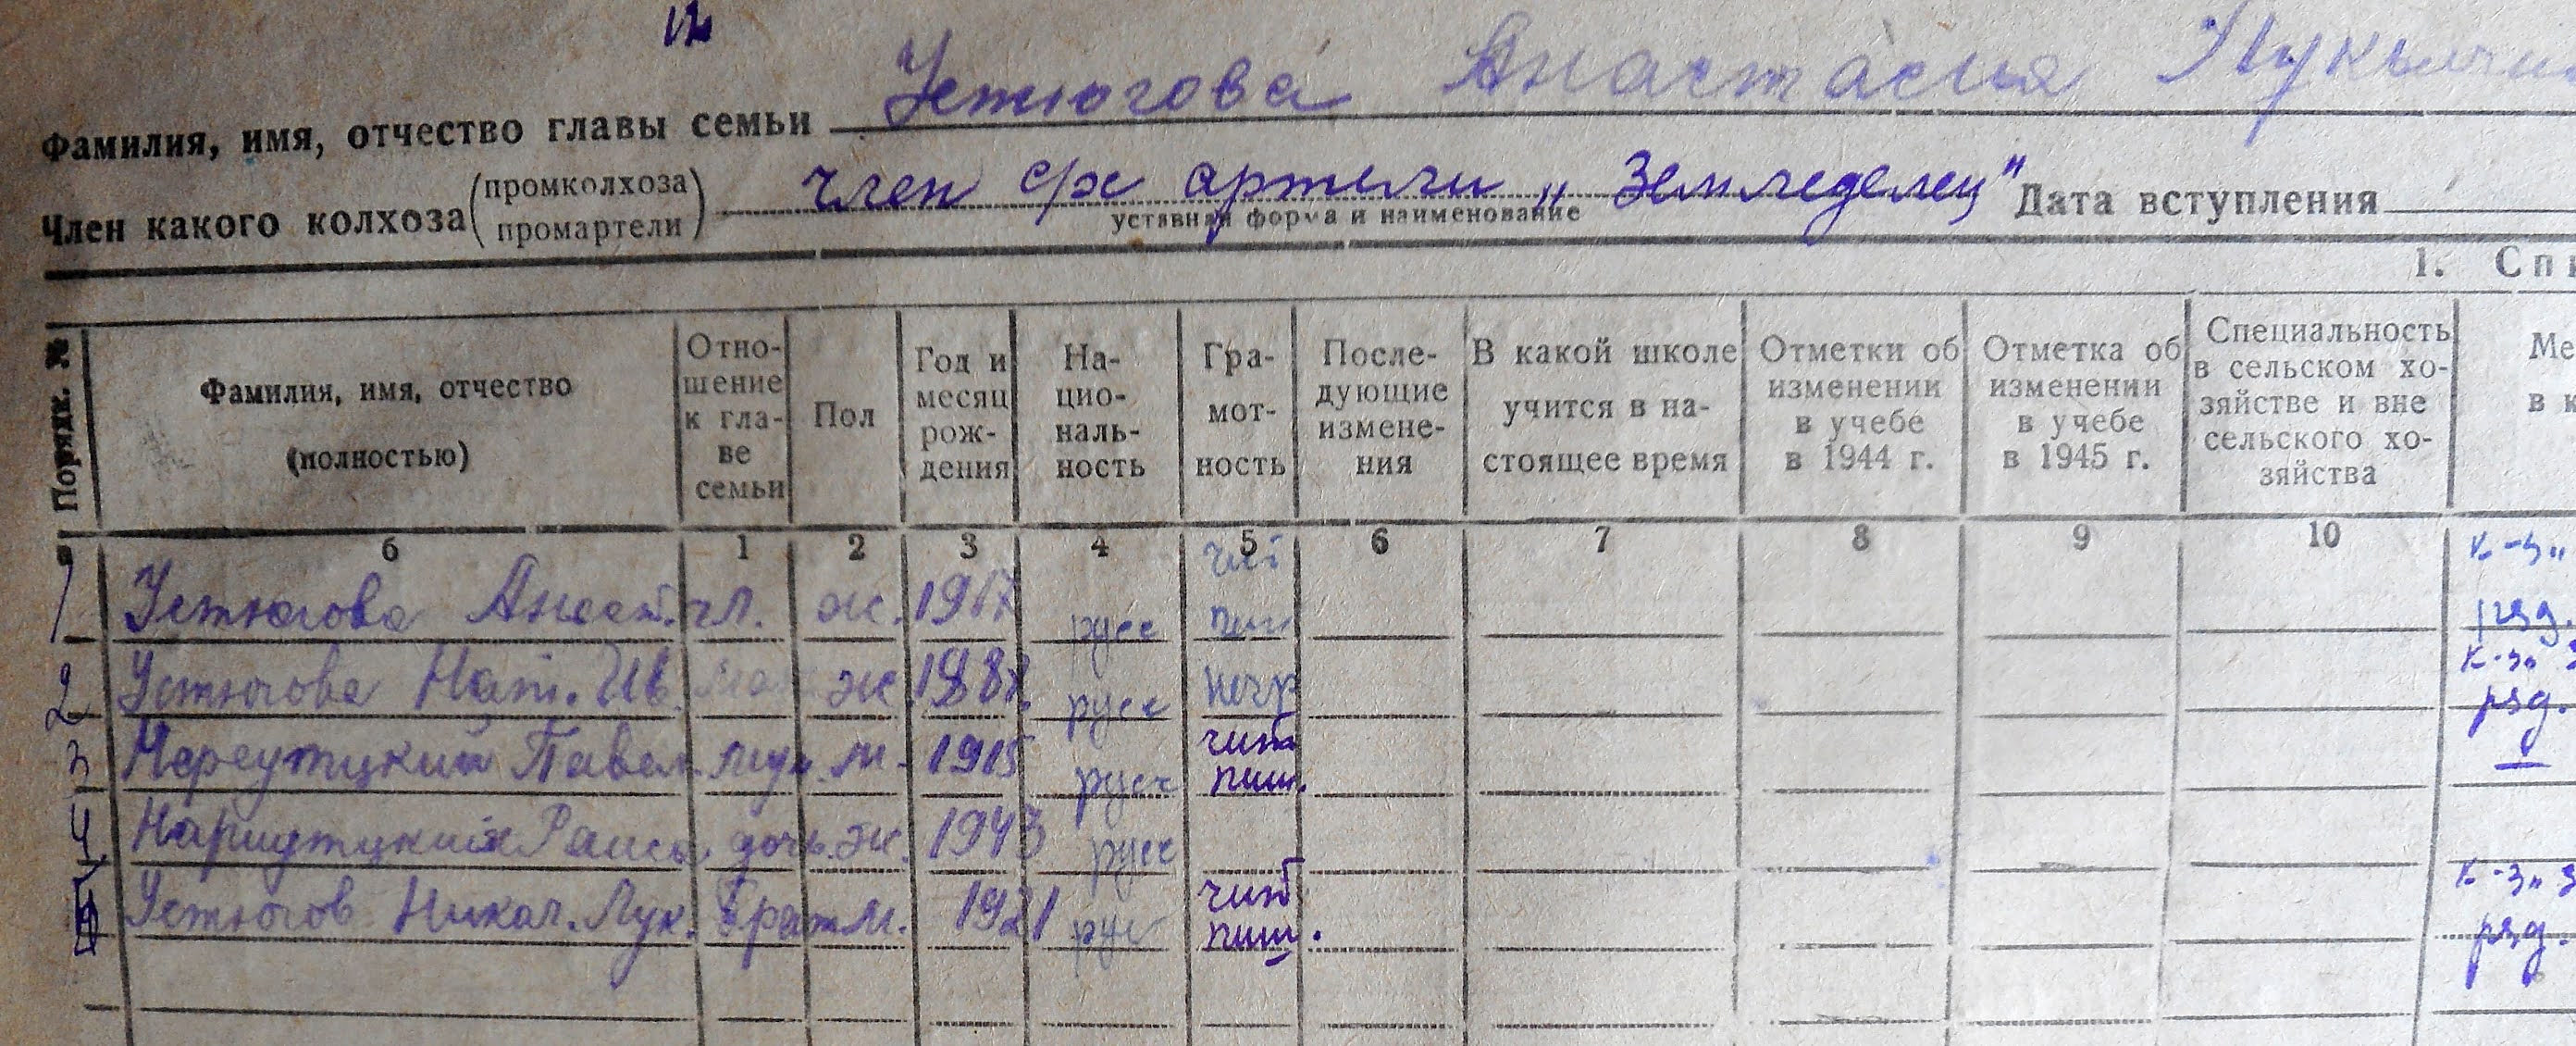 12
Фамилия, имя, отчество главы семьи Устюгова Анастасия Лукьяни
Член какого колхоза (промколхоза промартели) член с/х артели „Земледелец" Дата вступления
уставная форма и наименование
1. Спи
Порядк. №
Фамилия, имя, отчество (полностью)
Отно-
шение
к гла-
ве
семьи
Пол
Год и
месяц
рож-
дения
На-
цио-
наль-
ность
Гра-
мот-
ность
После-
дующие
измене-
ния
В какой школе
учится в на-
стоящее время
Отметки об
изменении
в учебе
в 1944 г.
Отметка об
изменении
в учебе
в 1945 г.
Специальность
в сельском хо-
зяйстве и вне
сельского хо-
зяйства
Ме
в к
6 1 2 3 4 5 6 7 8 9 10
1 Устюгова Анаст. гл. ж. 1917 русс чит пиш к-з„ ряд.
2 Устюгова Нат. Ив. ж 188 русс негр к-з„ З ряд.
3 Павел муж м. 1915 русс чит пиш. —
4 дочь ж. 1943 русс
Устюгов Никол. Лук. брат м. 1921 рус чит пиш. к-з„ З ряд.